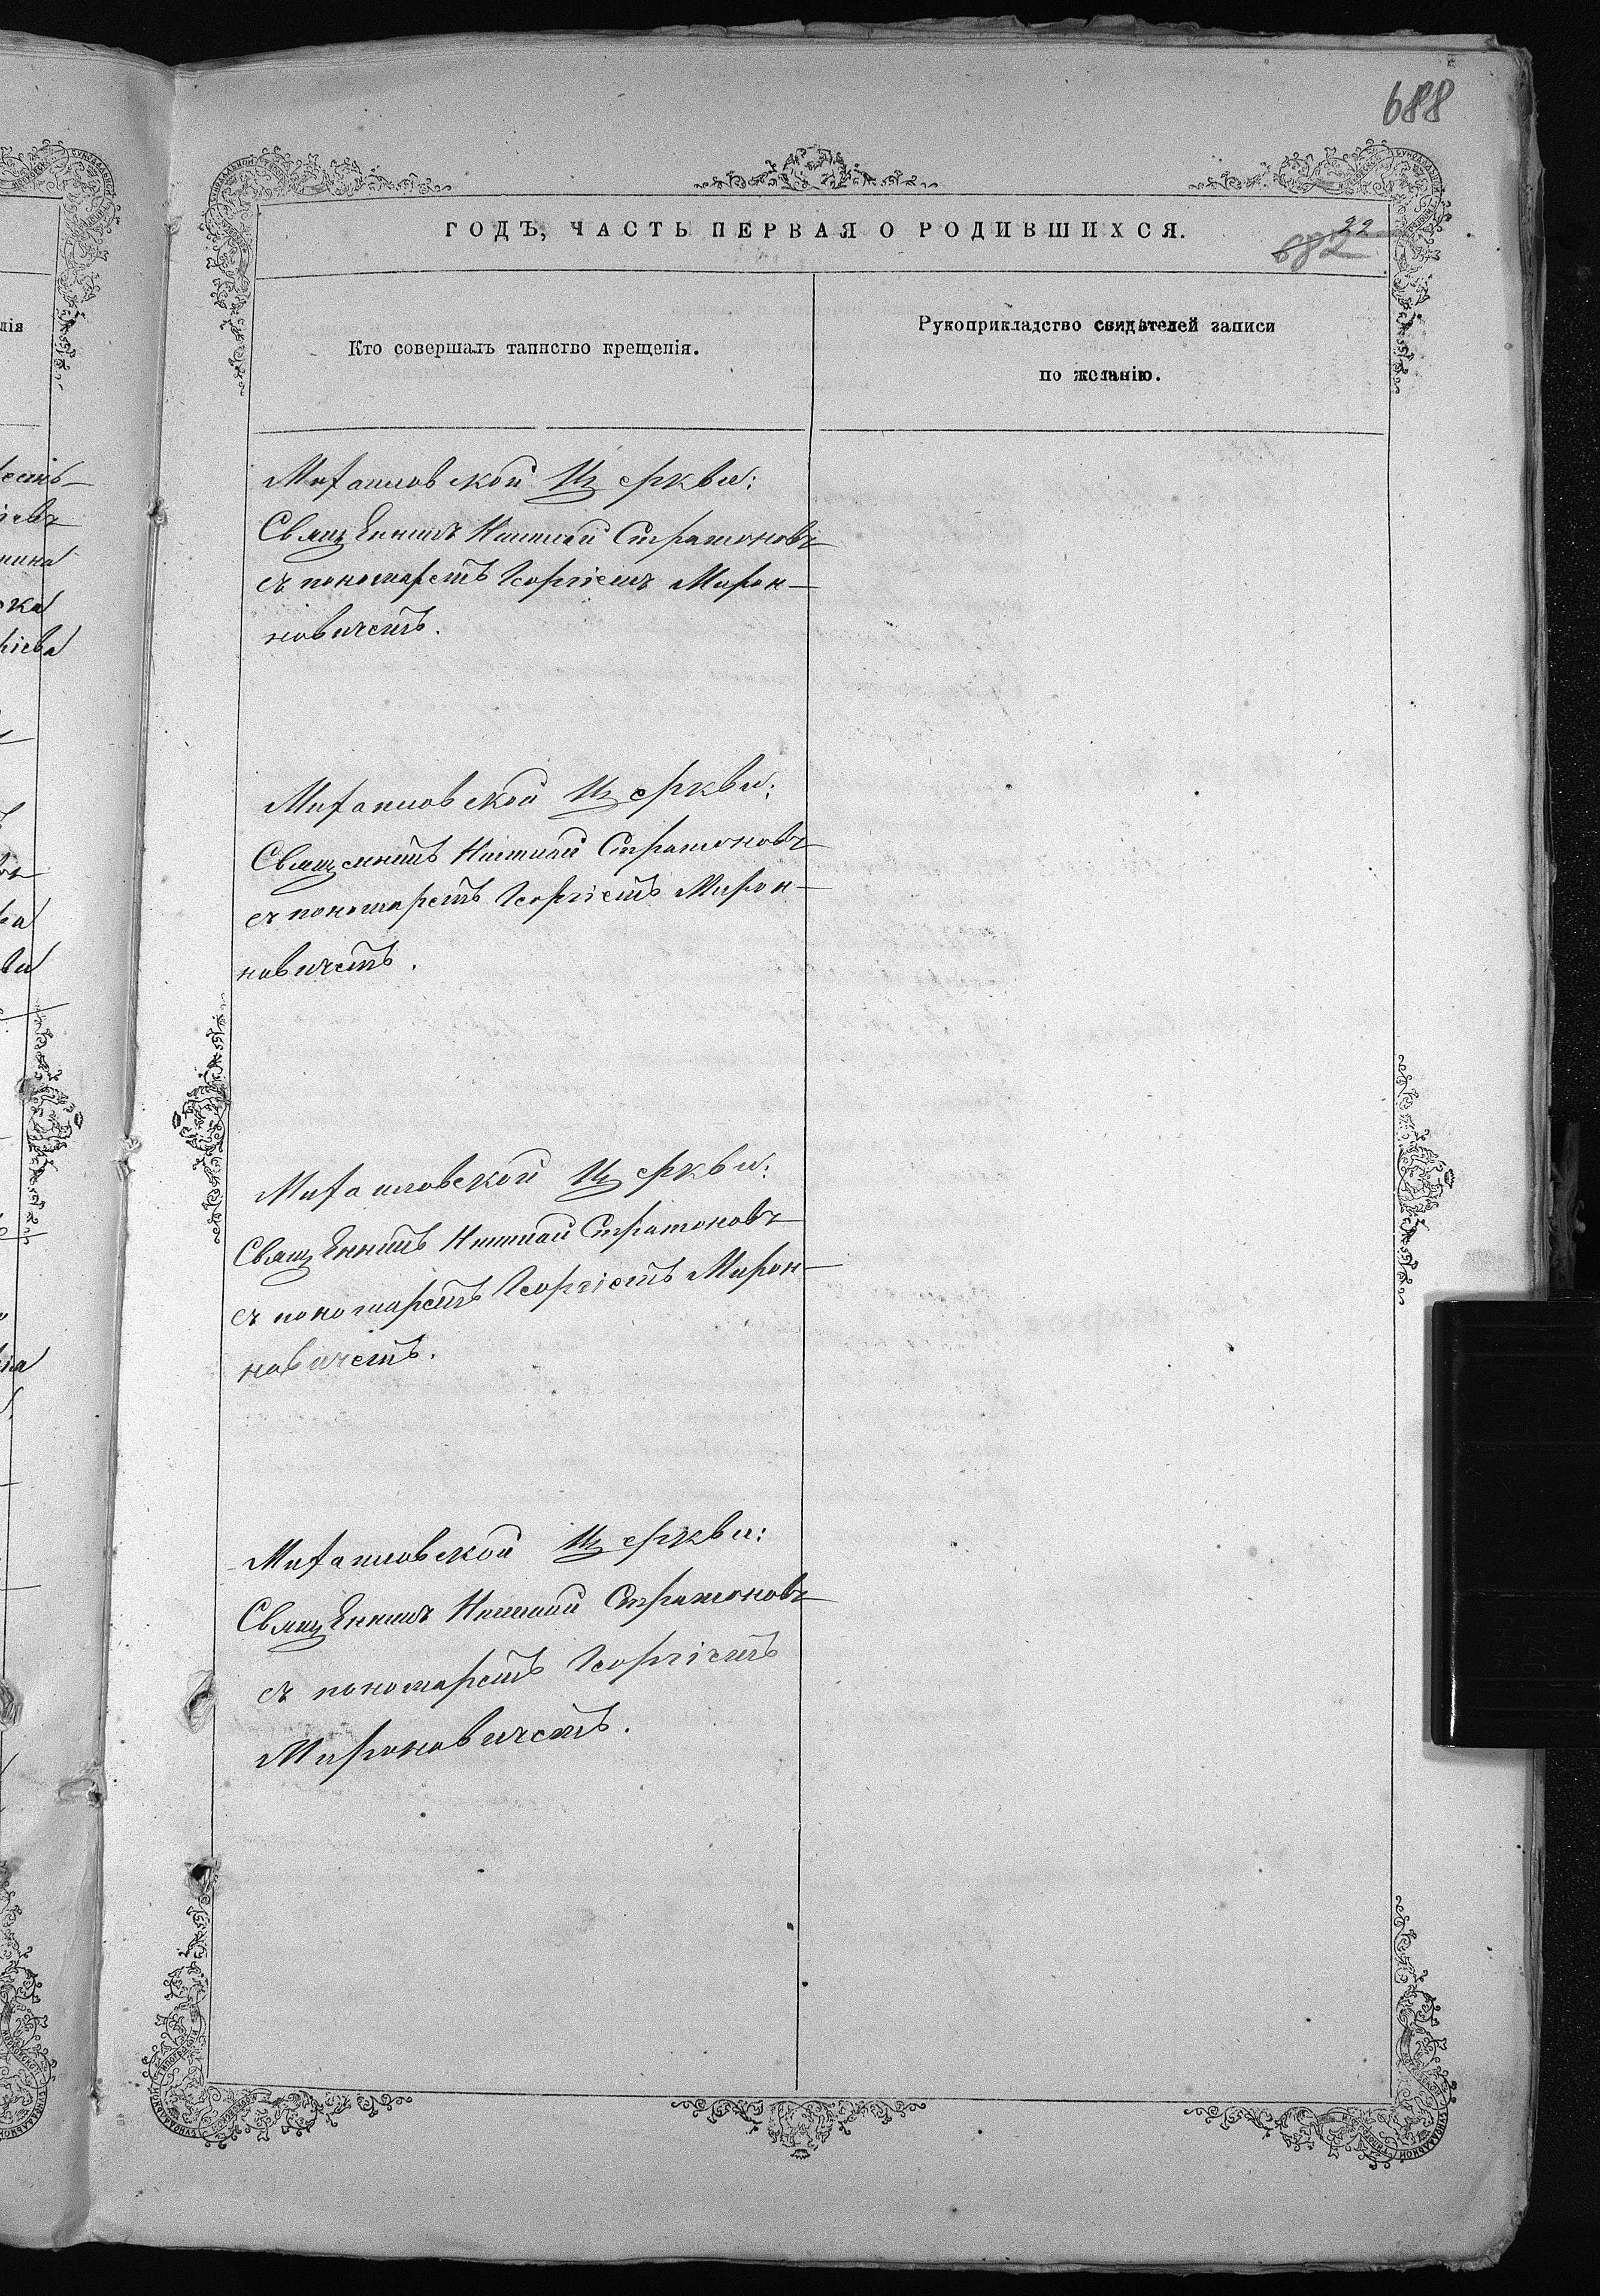 688
ГОДЪ, ЧАСТЬ ПЕРВАЯ О РОДИВШИХСЯ.
22
682
Кто совершалъ таинство крещенія.
Рукоприкладство свидѣтелей записи
по желанію.
Михаиловской Церкви:
Священникъ Николай Стратоновъ
съ пономаремъ Георгіемъ Мирон-
новичемъ.
Михаиловской Церкви:
Священникъ Николай Стратоновъ
съ пономаремъ Георгіемъ Мирон-
новичемъ.
Михаиловской Церкви:
Священникъ Николай Стратоновъ
съ пономаремъ Георгіемъ Мирон-
новичемъ.
Михаиловской Церкви:
Священникъ Николай Стратоновъ
съ пономаремъ Георгіемъ
Мироновичемъ.